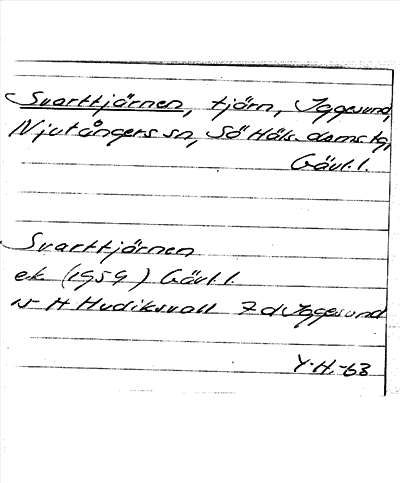 Svarttjärnen, tjärn, Iggesund,
Njutångers sn, Sö Häls. domstg,
Gävl.l.
Svarttjärnen
ek (1959) Gävl.l.
H Hudiksvall 7 d Iggesund
Y.H.-63